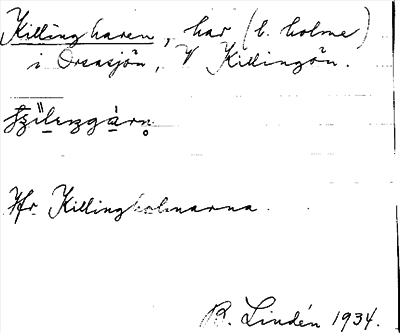 Killingharen, har (l. holme)
i Orsasjön, V Killingön.
Jfr Killingholmarna.
B. Lindén 1934.